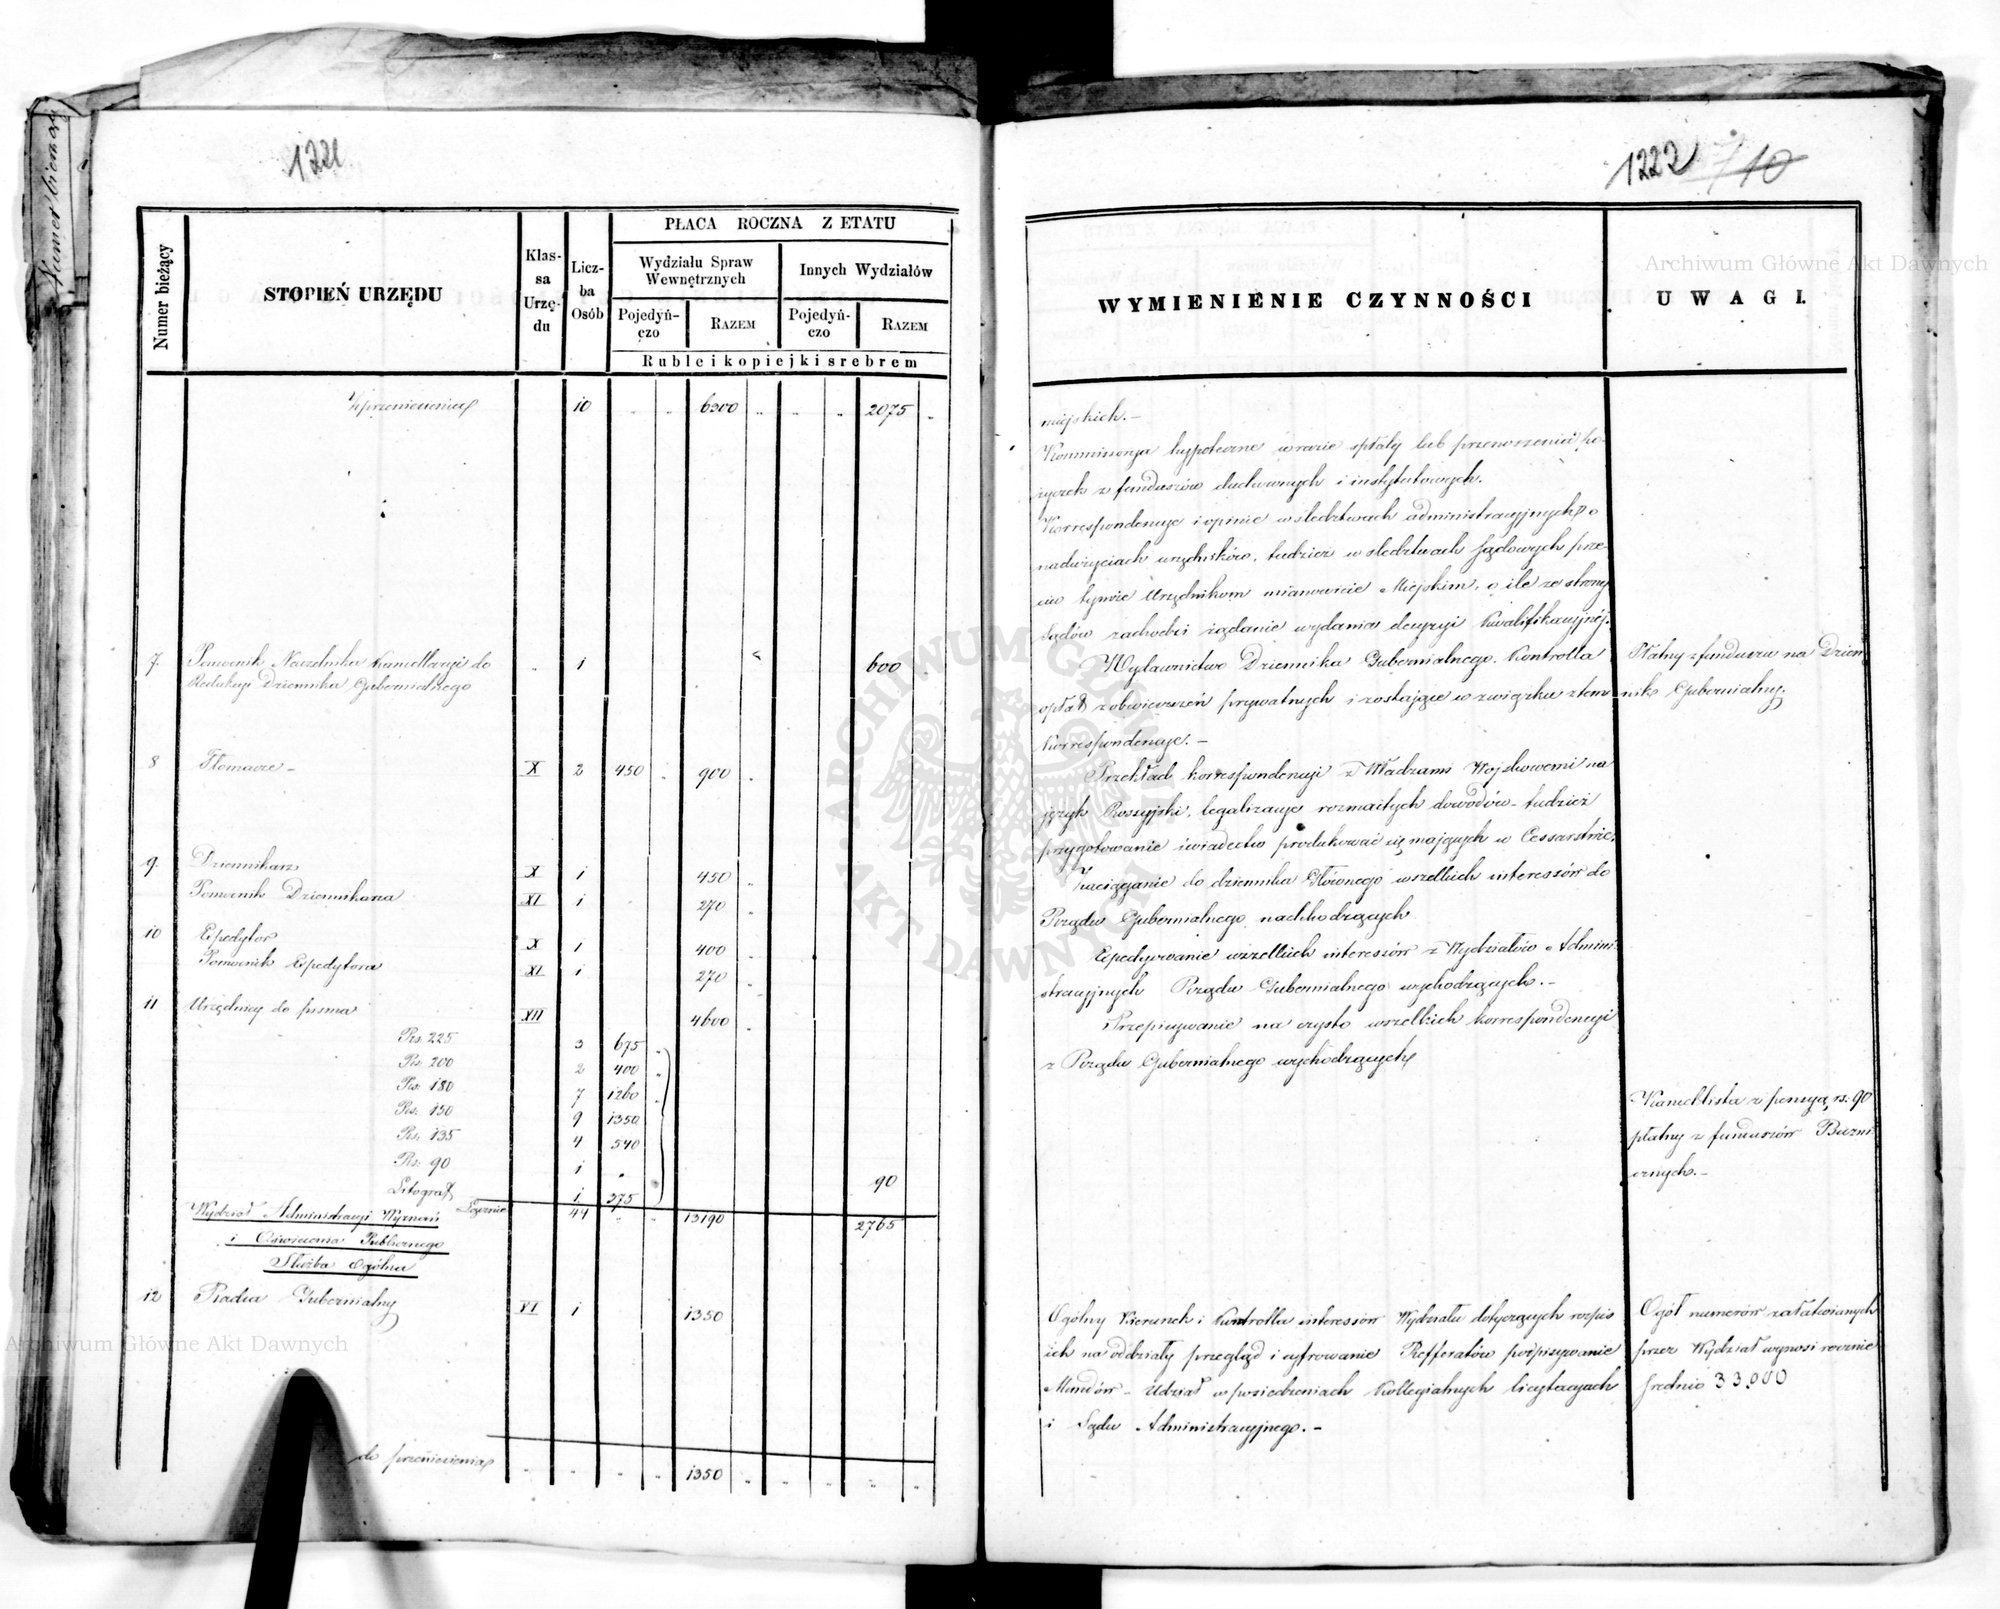 Numer bieżący
1221
Numer bieżący
STOPIEŃ URZĘDU
Klas-
sa
Urzę-
du
Licz-
ba
Osób
PŁACA ROCZNA Z ETATU
Wydziału Spraw
Wewnętrznych
Innych Wydziałów
Pojedyń-
czo
RAZEM
Pojedyń-
czo
RAZEM
Ruble i kopiejki srebrem
Z przeniesienia 10 " " 6300 " " " 2075 "
7. Pomocnik Naczelnika Kancellaryi do " 1 600
Redakcyi Dziennika Gubernialnego
8 Tłomacze - X 2 450 " 900 "
9. Dziennikarz X 1 450 "
Pomocnik Dziennikarza XI 1 270 "
10 Expedytor X 1 400
Pomocnik Expedytora XI 1 270 "
11 Urzędnicy do pisma XII 4600 "
Rs. 225 3 675 "
Rs. 200 2 400 "
Rs. 180 7 1260 "
Rs. 150 9 1350
Rs. 135 4 540
Rs. 90 1 " 90
Litograf 1 375
Łącznie 44 " " 13190 2765
Wydział Administracyi Wyznań
i Oświecenia Publicznego
Służba Ogólna
12 Radca Gubernialny VI 1 1350
do przeniesienia " " " " 1350 " " " " "
1222 10
WYMIENIENIE CZYNNOŚCI
UWAGI.
miejskich. -
Kommissorya hypoteczne w razie spłaty lub przenoszenia po-
życzek z funduszów duchownych i instytutowych.
Korrespondencye i opinie w śledztwach administracyjnych o
nadużyciach urzędników, tudzież w śledztwach Sądowych prze-
ciw tymże Urzędnikom mianowicie Miejskim, o ile ze strony
Sądów zachodzi żądanie wydania decyzyi Kwalifikacyjnej.
Wydawnictwo Dziennika Gubernialnego. Kontrolla
opłat z obwieszczeń prywatnych i zostające w związku z tem
Korrespondencye. -
Płatny z funduszu na Dzien
nik Gubernialny.
Przekład korrespondencyi z Władzami Wojskowemi na
język Rossyjski, legalizacye rozmaitych dowodów - tudzież
przygotowanie świadectw produkować się mających w Cesarstwie.
Zaciąganie do dziennika Głównego wszelkich interessów do
Rządu Gubernialnego nadchodzących
Expedyowanie wszelkich interessów z Wydziałów Admini-
stracyjnych Rządu Gubernialnego wychodzących. -
Przepisywanie na czysto wszelkich korrespondencyi
z Rządu Gubernialnego wychodzących
Kancellista z pensyą rs: 90
płatny z funduszów Bóżni-
cznych. -
Ogólny Kierunek i Kontrolla interessów Wydziału dotyczących rozpis
ich na oddziały przegląd i cyfrowanie Refferatów podpisywanie
Mundów - Udział w posiedzeniach Kollegialnych licytacyach
i Sądu Administracyjnego. -
Ogół numerów załatwianych
przez Wydział wynosi rocznie
średnio 33,000
Archiwum Główne Akt Dawnych
Archiwum Główne Akt Dawnych
ARCHIWUM GŁÓWNE AKT DAWNYCH